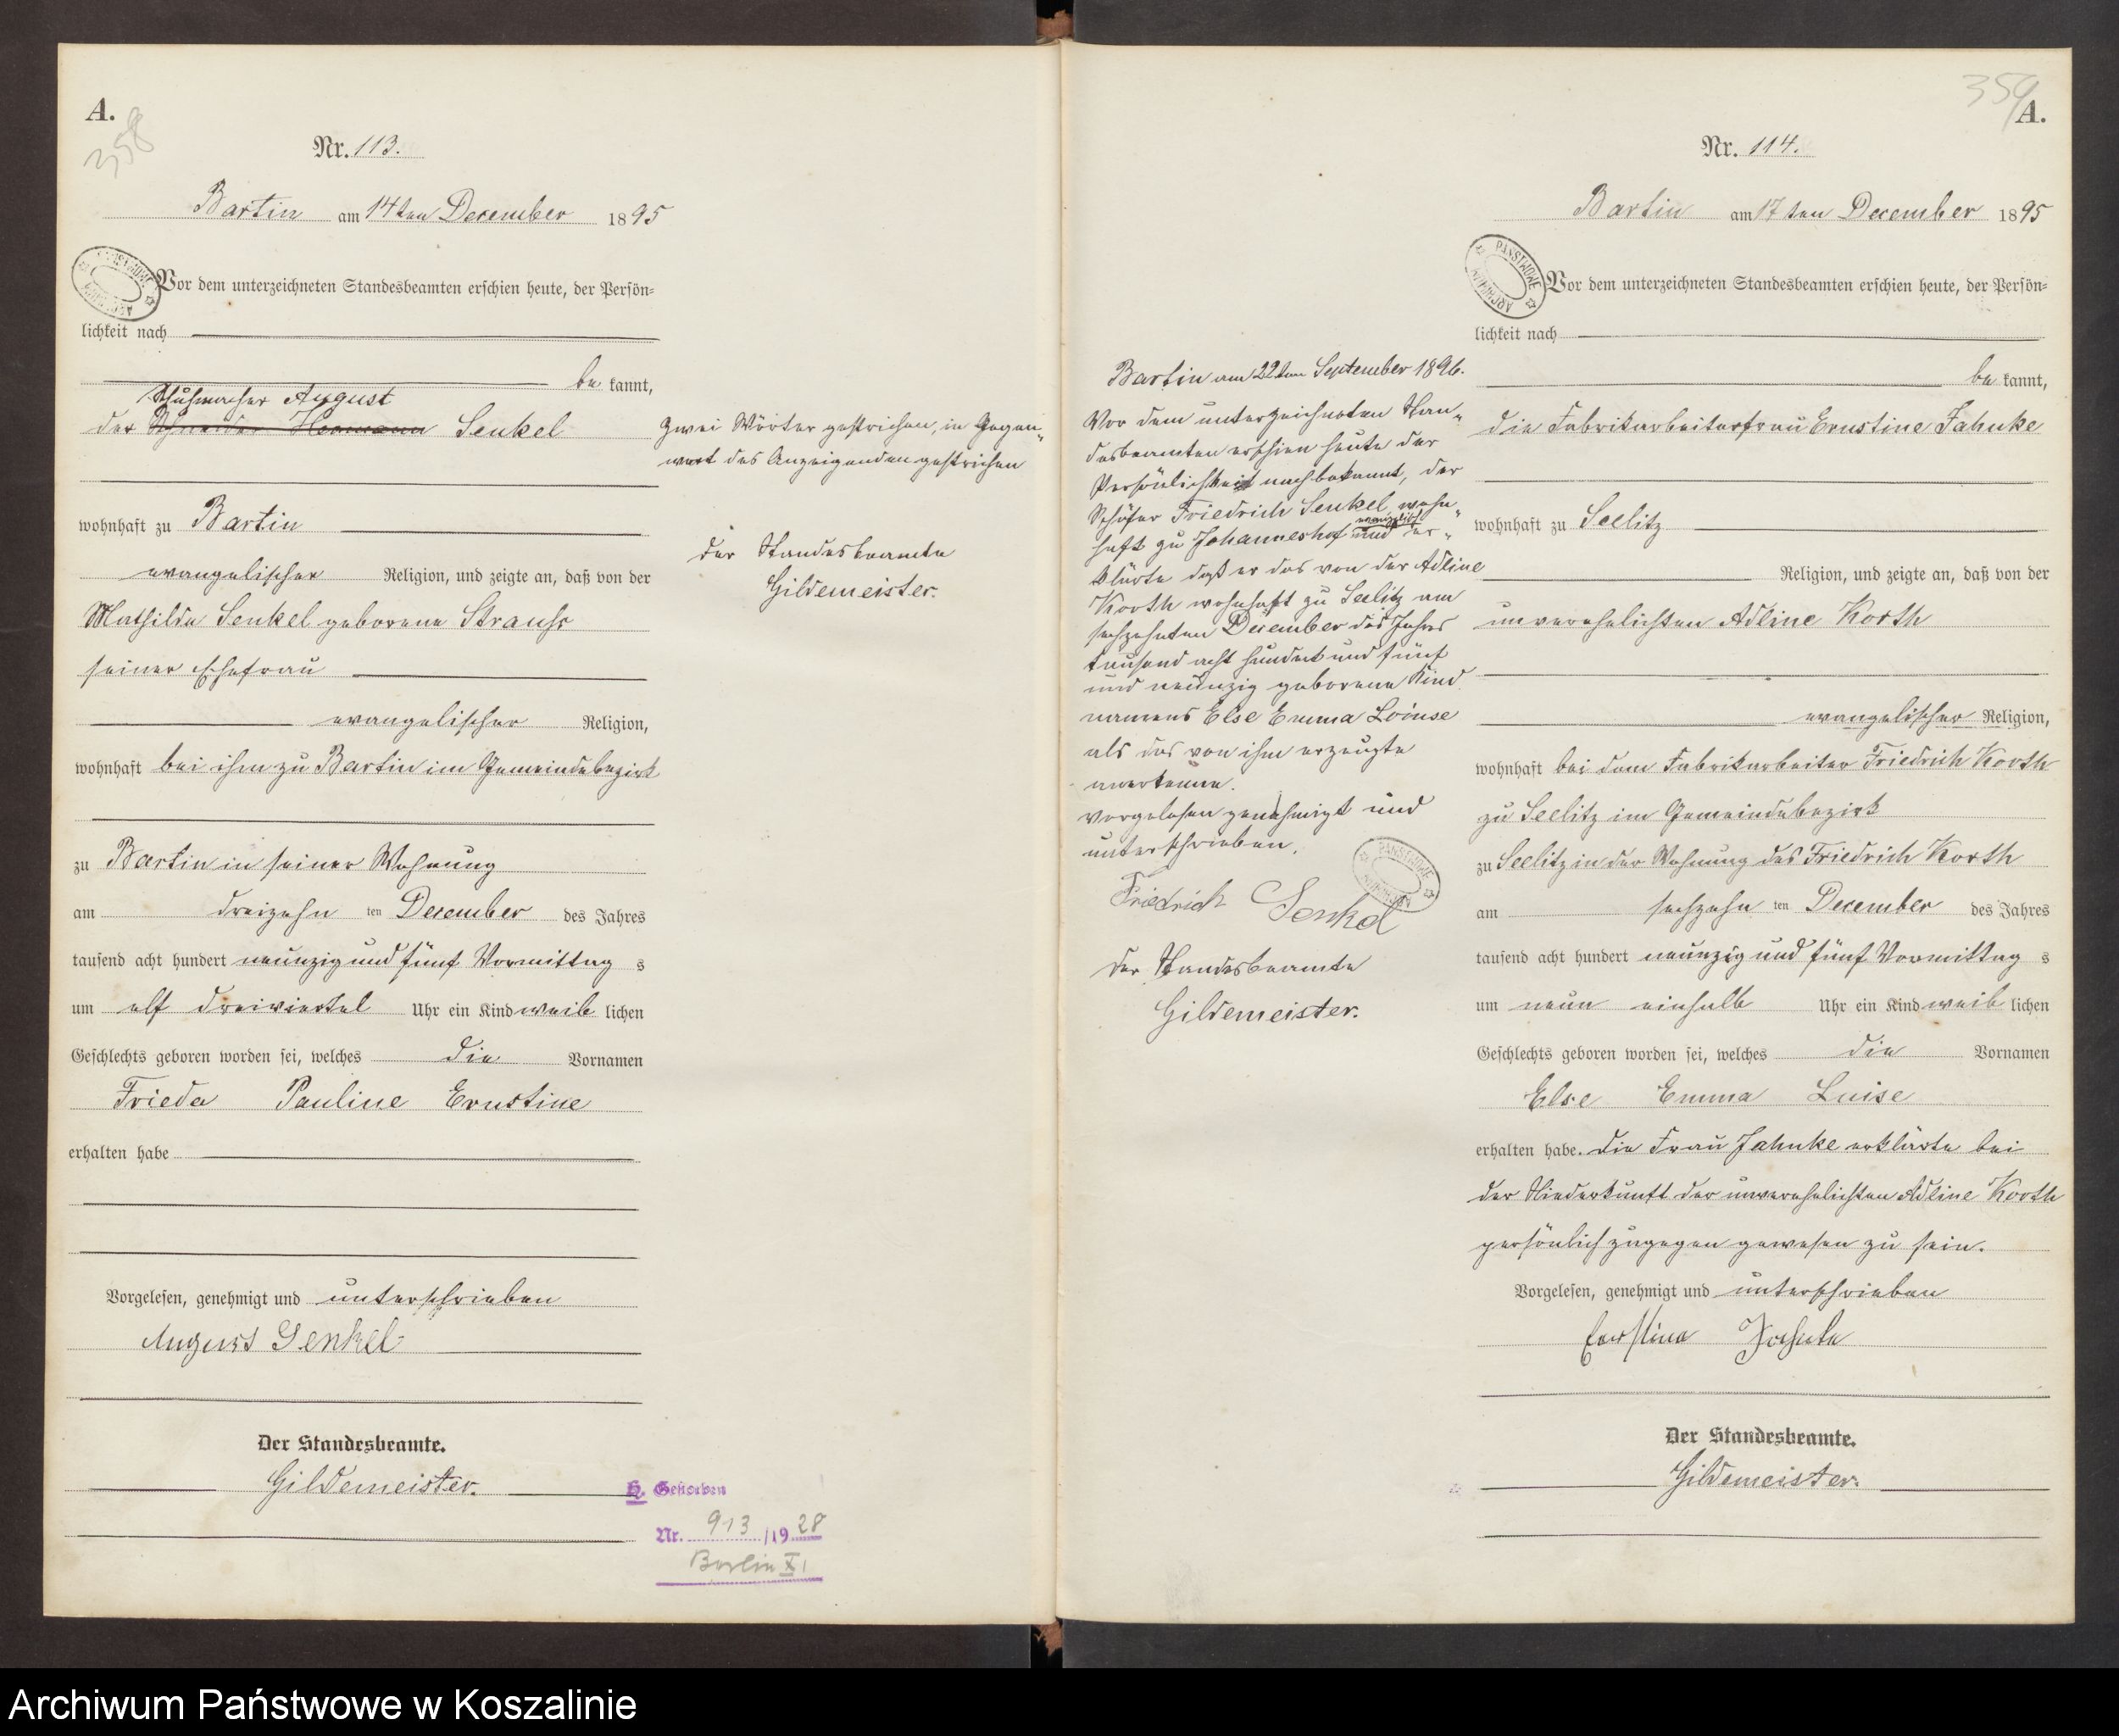 A.
358
Nr. 113.
Bartin am 14ten December 1895
Vor dem unterzeichneten Standesbeamten erschien heute, der Persön=
lichkeit nach
be kannt,
Schuhmacher August
der Schneider Hermann Senkel
wohnhaft zu Bartin
evangelischer Religion, und zeigte an, daß von der
Mathilde Senkel geborene Strauhs
seiner Ehefrau
evangelischer Religion,
wohnhaft bei ihm zu Bartin im Gemeindebezirk
zu Bartin in seiner Wohnung
am dreizehn ten December des Jahres
tausend acht hundert neunzig und fünf Vormittag s
um elf dreiviertel Uhr ein Kind weib lichen
Geschlechts geboren worden sei, welches die Vornamen
Frieda Pauline Ernstine
erhalten habe
Vorgelesen, genehmigt und unterschrieben
August Senkel
Der Standesbeamte.
Gildemeister.
Zwei Wörter gestrichen, in Gegen„
wart des Anzeigenden gestrichen
Der Standesbeamte
Gildemeister.
Gestorben
Nr. 913 /19 28
Berlin X
359
A.
Nr. 114.
Bartin am 17ten December 1895
Vor dem unterzeichneten Standesbeamten erschien heute, der Persön=
lichkeit nach
be kannt,
die Fabrikarbeiterfrau Ernstine Jahnke
wohnhaft zu Seelitz
Religion, und zeigte an, daß von der
unverehelichten Adline Korth
evangelischer Religion,
wohnhaft bei dem Fabrikarbeiter Friedrich Korth
zu Seelitz im Gemeindebezirk
zu Seelitz in der Wohnung des Friedrich Korth
am sechzehn ten December des Jahres
tausend acht hundert neunzig und fünf Vormittag s
um neun einhalb Uhr ein Kind weib lichen
Geschlechts geboren worden sei, welches die Vornamen
Else Emma Luise
erhalten habe. Die Frau Jahnke erklärte bei
der Niederkunft der unverehelichten Adline Korth
persönlich zugegen gewesen zu sein.
Vorgelesen, genehmigt und unterschrieben
Ernstine Jahnke
Der Standesbeamte.
Gildemeister.
Bartin am 22ten September 1896.
Vor dem unterzeichneten Stan„
desbeamten erschien heute der
Persönlichkeit nach bekannt, der
Schäfer Friedrich Senkel, wohn„
haft zu Johanneshof und er„
klärte daß er das von der Adline
Korth wohnhaft zu Seelitz am
sechzehnten December des Jahres
tausend acht hundert und fünf
und neunzig geborene Kind
namens Else Emma Louise
als das von ihm erzeugte
anerkenne.
vorgelesen genehmigt und
unterschrieben.
Friedrich Senkel
Der Standesbeamte
Gildemeister.
Archiwum Państwowe w Koszalinie